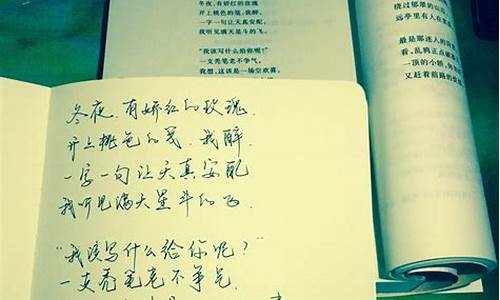 冬夜，有娇红的玫瑰
开上桃色的笺，我醉，
一字一句让天真安配，
我听见满天星斗的飞。
"我该写什么给你呢？"
一支秃笔老不争气，
我想，这该是一场空欢喜，
绕过郁翠的山
远亭里有人在
最是那迷人的
看，乱鸦正点
一顶的小轿，
又赶着前路的
冬夜，有娇红的玫瑰，
开上桃色的笺，我醉，
一字一句让天真安配
我听见满天星斗的飞。
"我该写什么给你呢？"
一支秃笔老不争气，